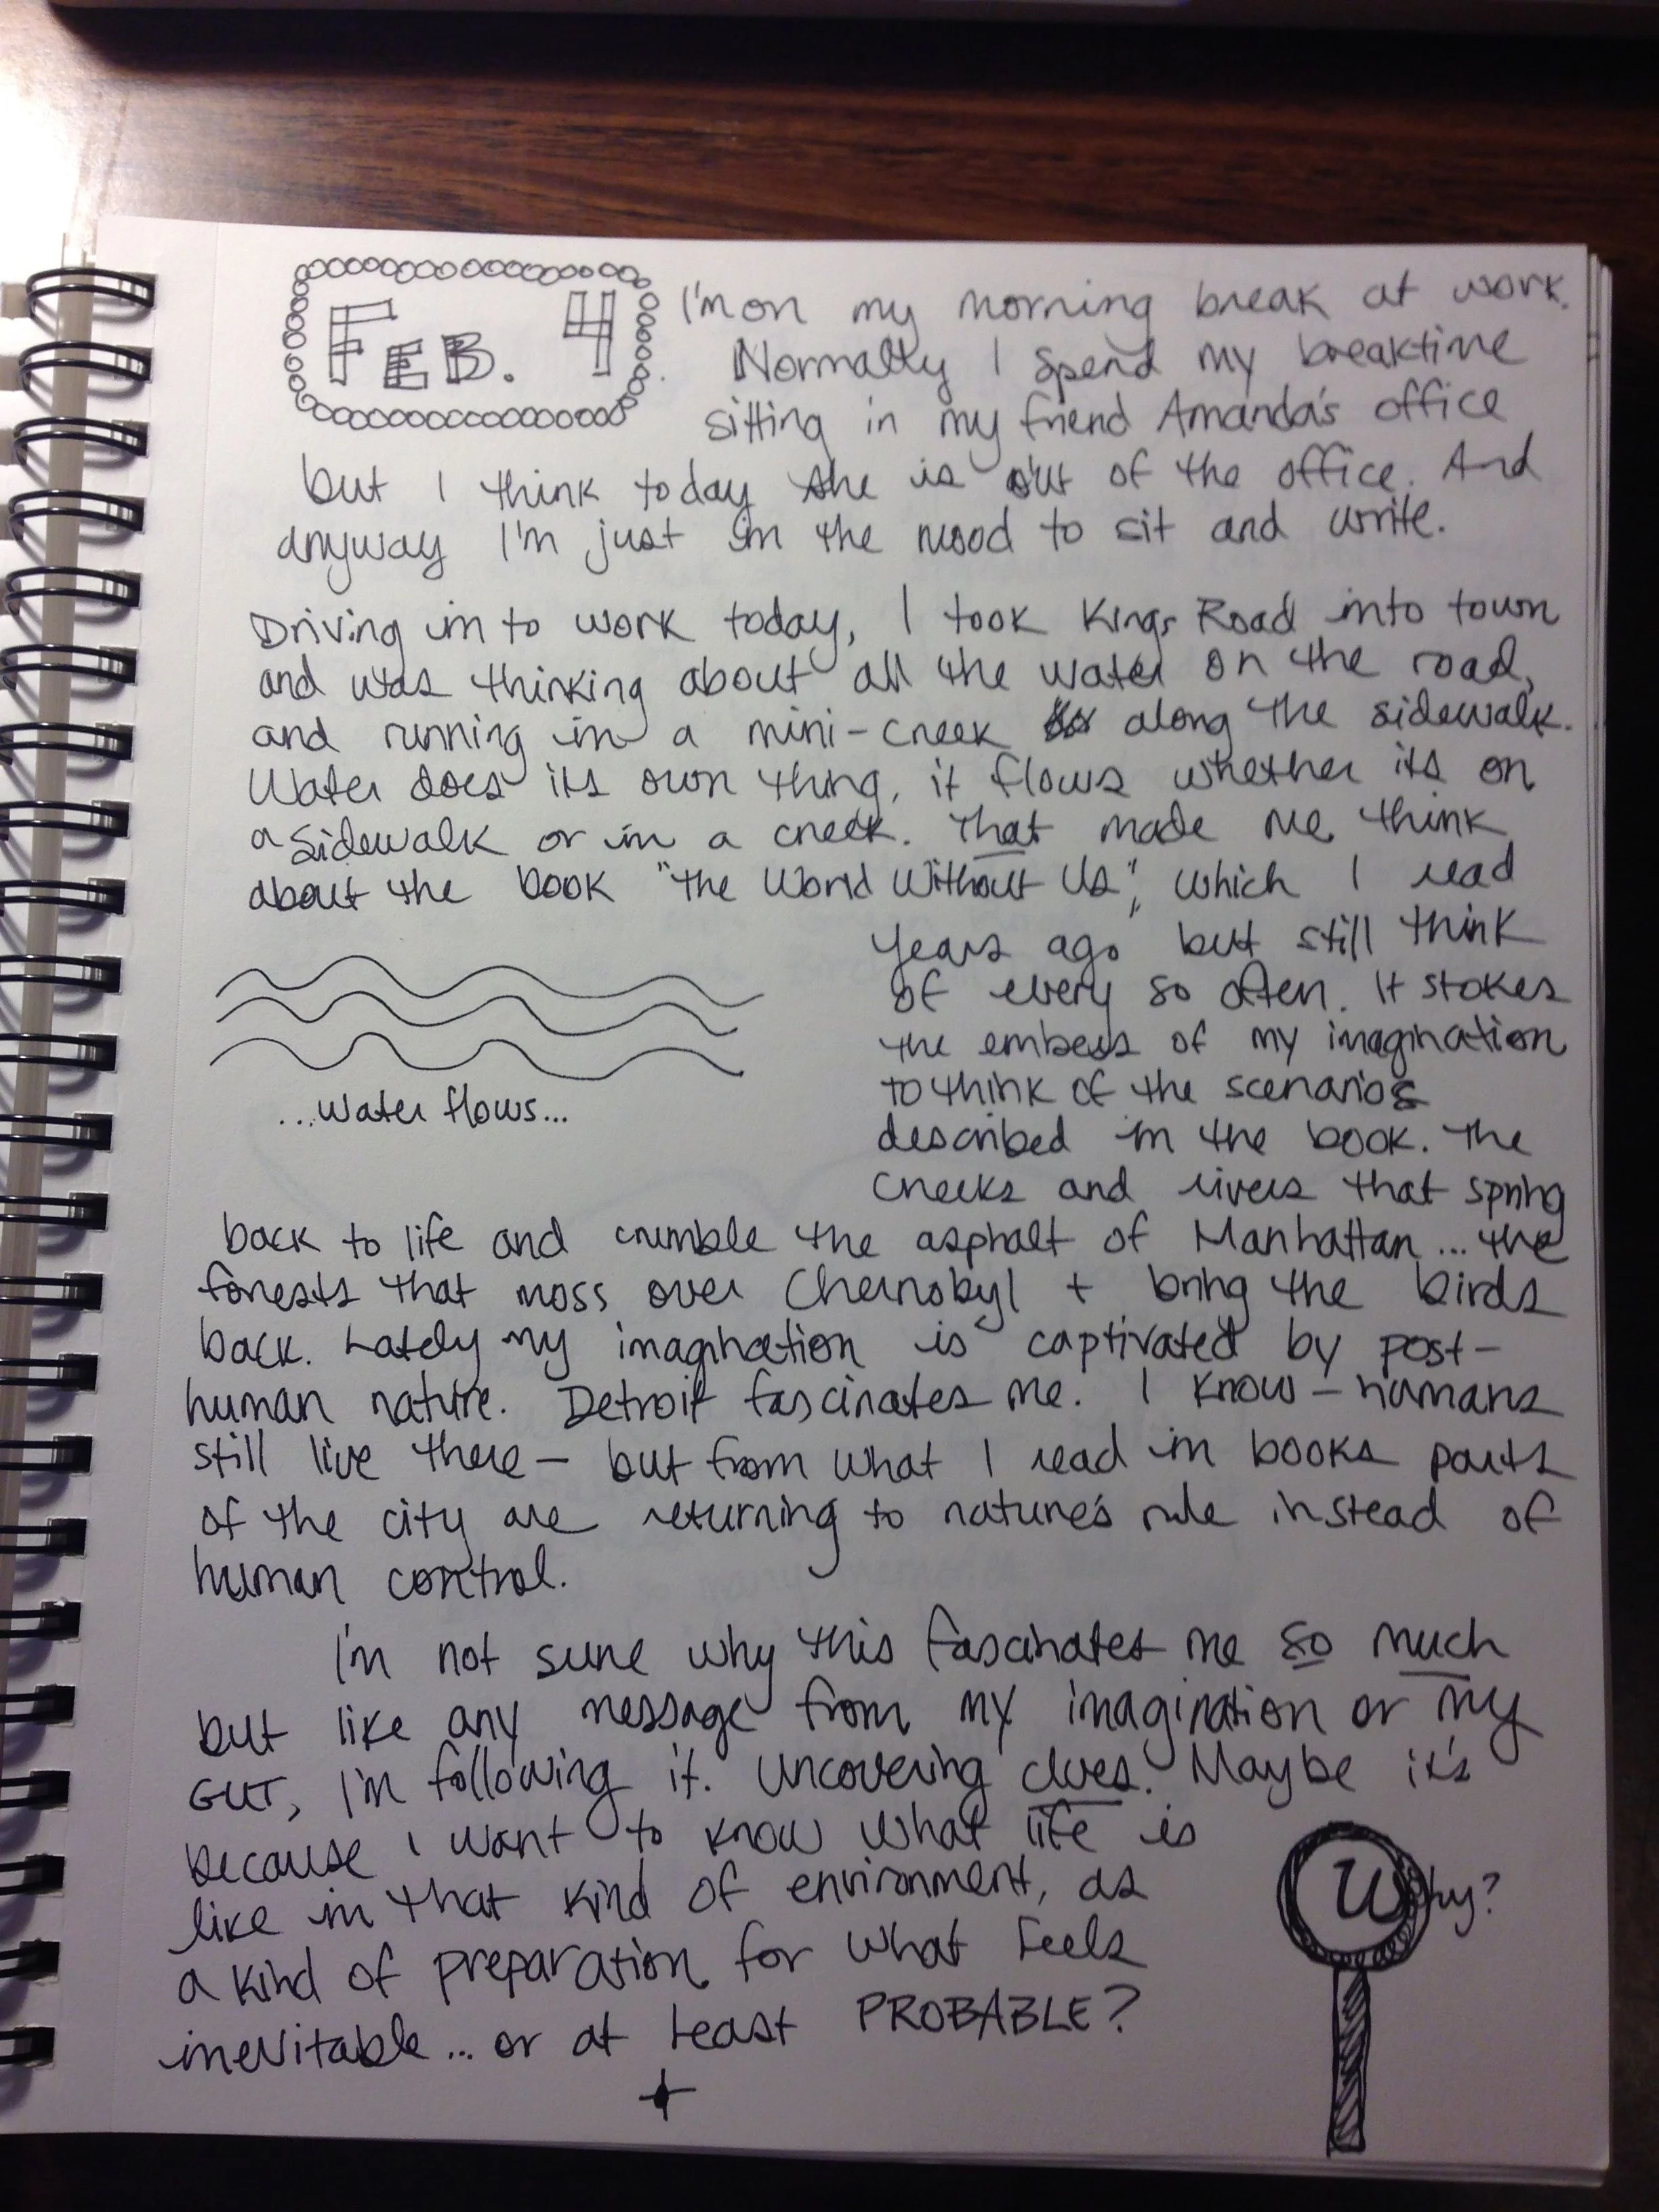 FEB. 4
I'm on my morning break at work.
Normally I spend my breaktime
sitting in my friend Amanda's office
but I think today she is out of the office. And
anyway I'm just in the mood to sit and write.
Driving in to work today, I took Kings Road into town
and was thinking about all the water on the road,
and running in a mini-creek along the sidewalk.
Water does its own thing, it flows whether its on
a sidewalk or in a creek. That made me think
about the book "The World Without Us", which I read
years ago but still think
of every so often. It stokes
the embers of my imagination
to think of the scenarios
described in the book. The
creeks and rivers that spring
...water flows...
back to life and crumble the asphalt of Manhattan... the
forests that moss over Chernobyl + bring the birds
back. Lately my imagination is captivated by post-
human nature. Detroit fascinates me. I know - humans
still live there - but from what I read in books parts
of the city are returning to nature's rule instead of
human control.
I'm not sure why this fascinates me so much
but like any message from my imagination or my
GUT, I'm following it. Uncovering clues. Maybe it's
because I want to know what life is
like in that kind of environment, as
a kind of preparation for what feels
inevitable... or at least PROBABLE?
Why?